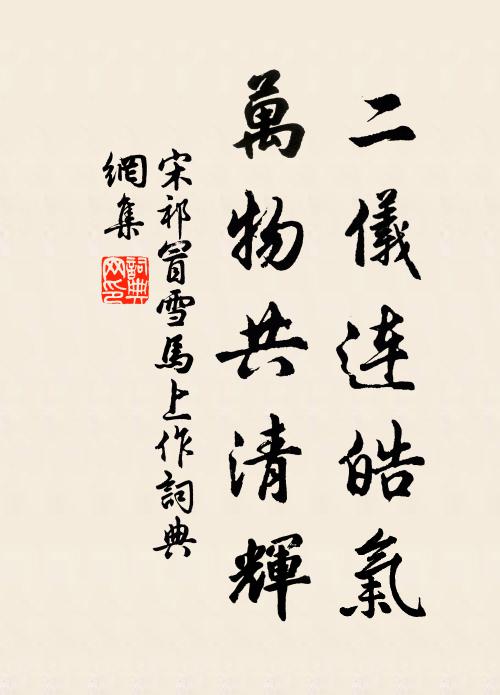 二儀連皓氣
萬物共清輝
宋祁冒雪馬上作詞典
網集
詞典網印